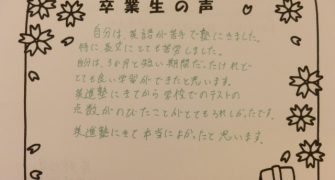 卒業生の声
自分は英語が苦手で塾にきました。
特に長文にとても苦労しました。
自分は、3か月と短い期間だったけれど
とても良い学習ができたと思います。
英進塾にきてから学校でのテストの
点数がのびたことがとてもうれしかったです。
英進塾にきて本当によかったと思います。